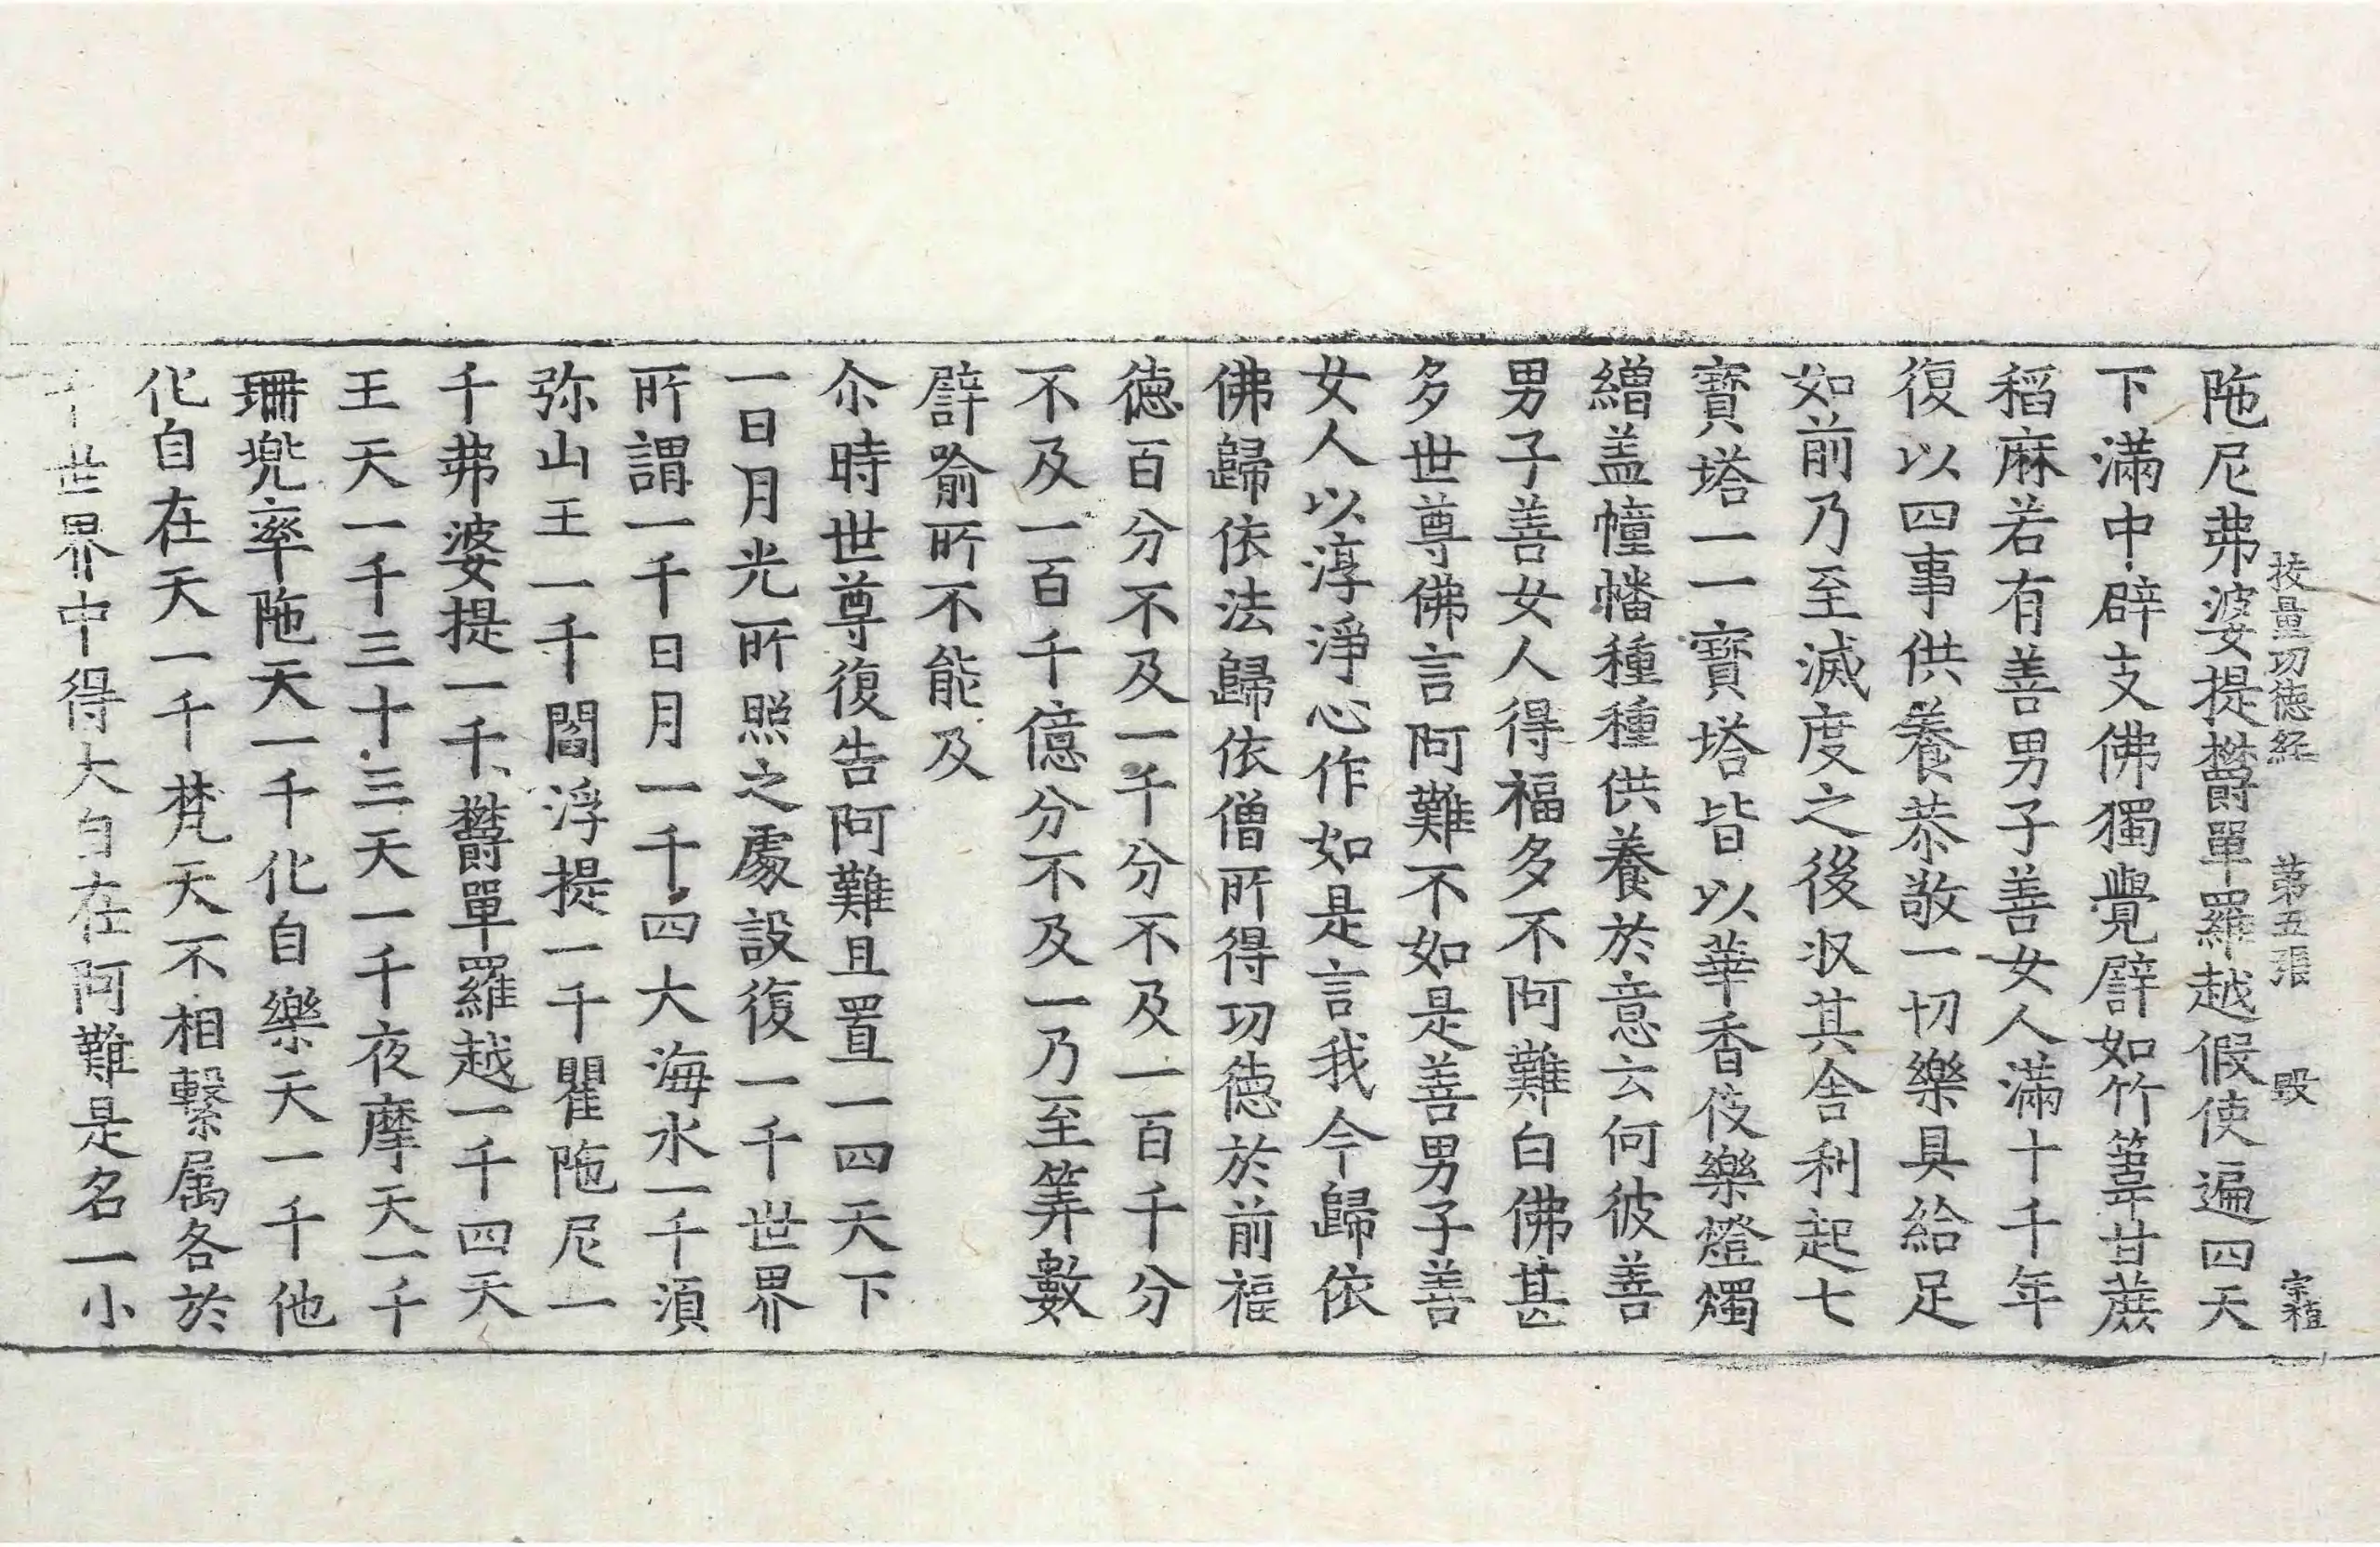 挍量功德経 第五張 毀 宗植
陁尼弗婆提欝單羅越假使遍四天
下滿中辟支佛獨覺譬如竹葦甘蔗
稻麻若有善男子善女人滿十千年
復以四事供養恭敬一切樂具給足
如前乃至滅度之後収其舍利起七
寶塔一一寶塔皆以華香伎樂燈燭
繒盖幢幡種種供養於意云何彼善
男子善女人得福多不阿難白佛甚
多世尊佛言阿難不如是善男子善
女人以淳淨心作如是言我今歸依
佛歸依法歸依僧所得功德於前福
德百分不及一千分不及一百千分
不及一百千億分不及一乃至筭數
譬喻所不能及
尒時世尊復告阿難且置一四天下
一日月光所照之處設復一千世界
所謂一千日月一千四大海水一千湏
弥山王一千閻浮提一千瞿陁尼一
千弗婆提一千欝單羅越一千四天
王天一千三十三天一千夜摩天一千
珊兠率陁天一千化自樂天一千他
化自在天一千梵天不相繫属各於
千世界中得大自在阿難是名一小